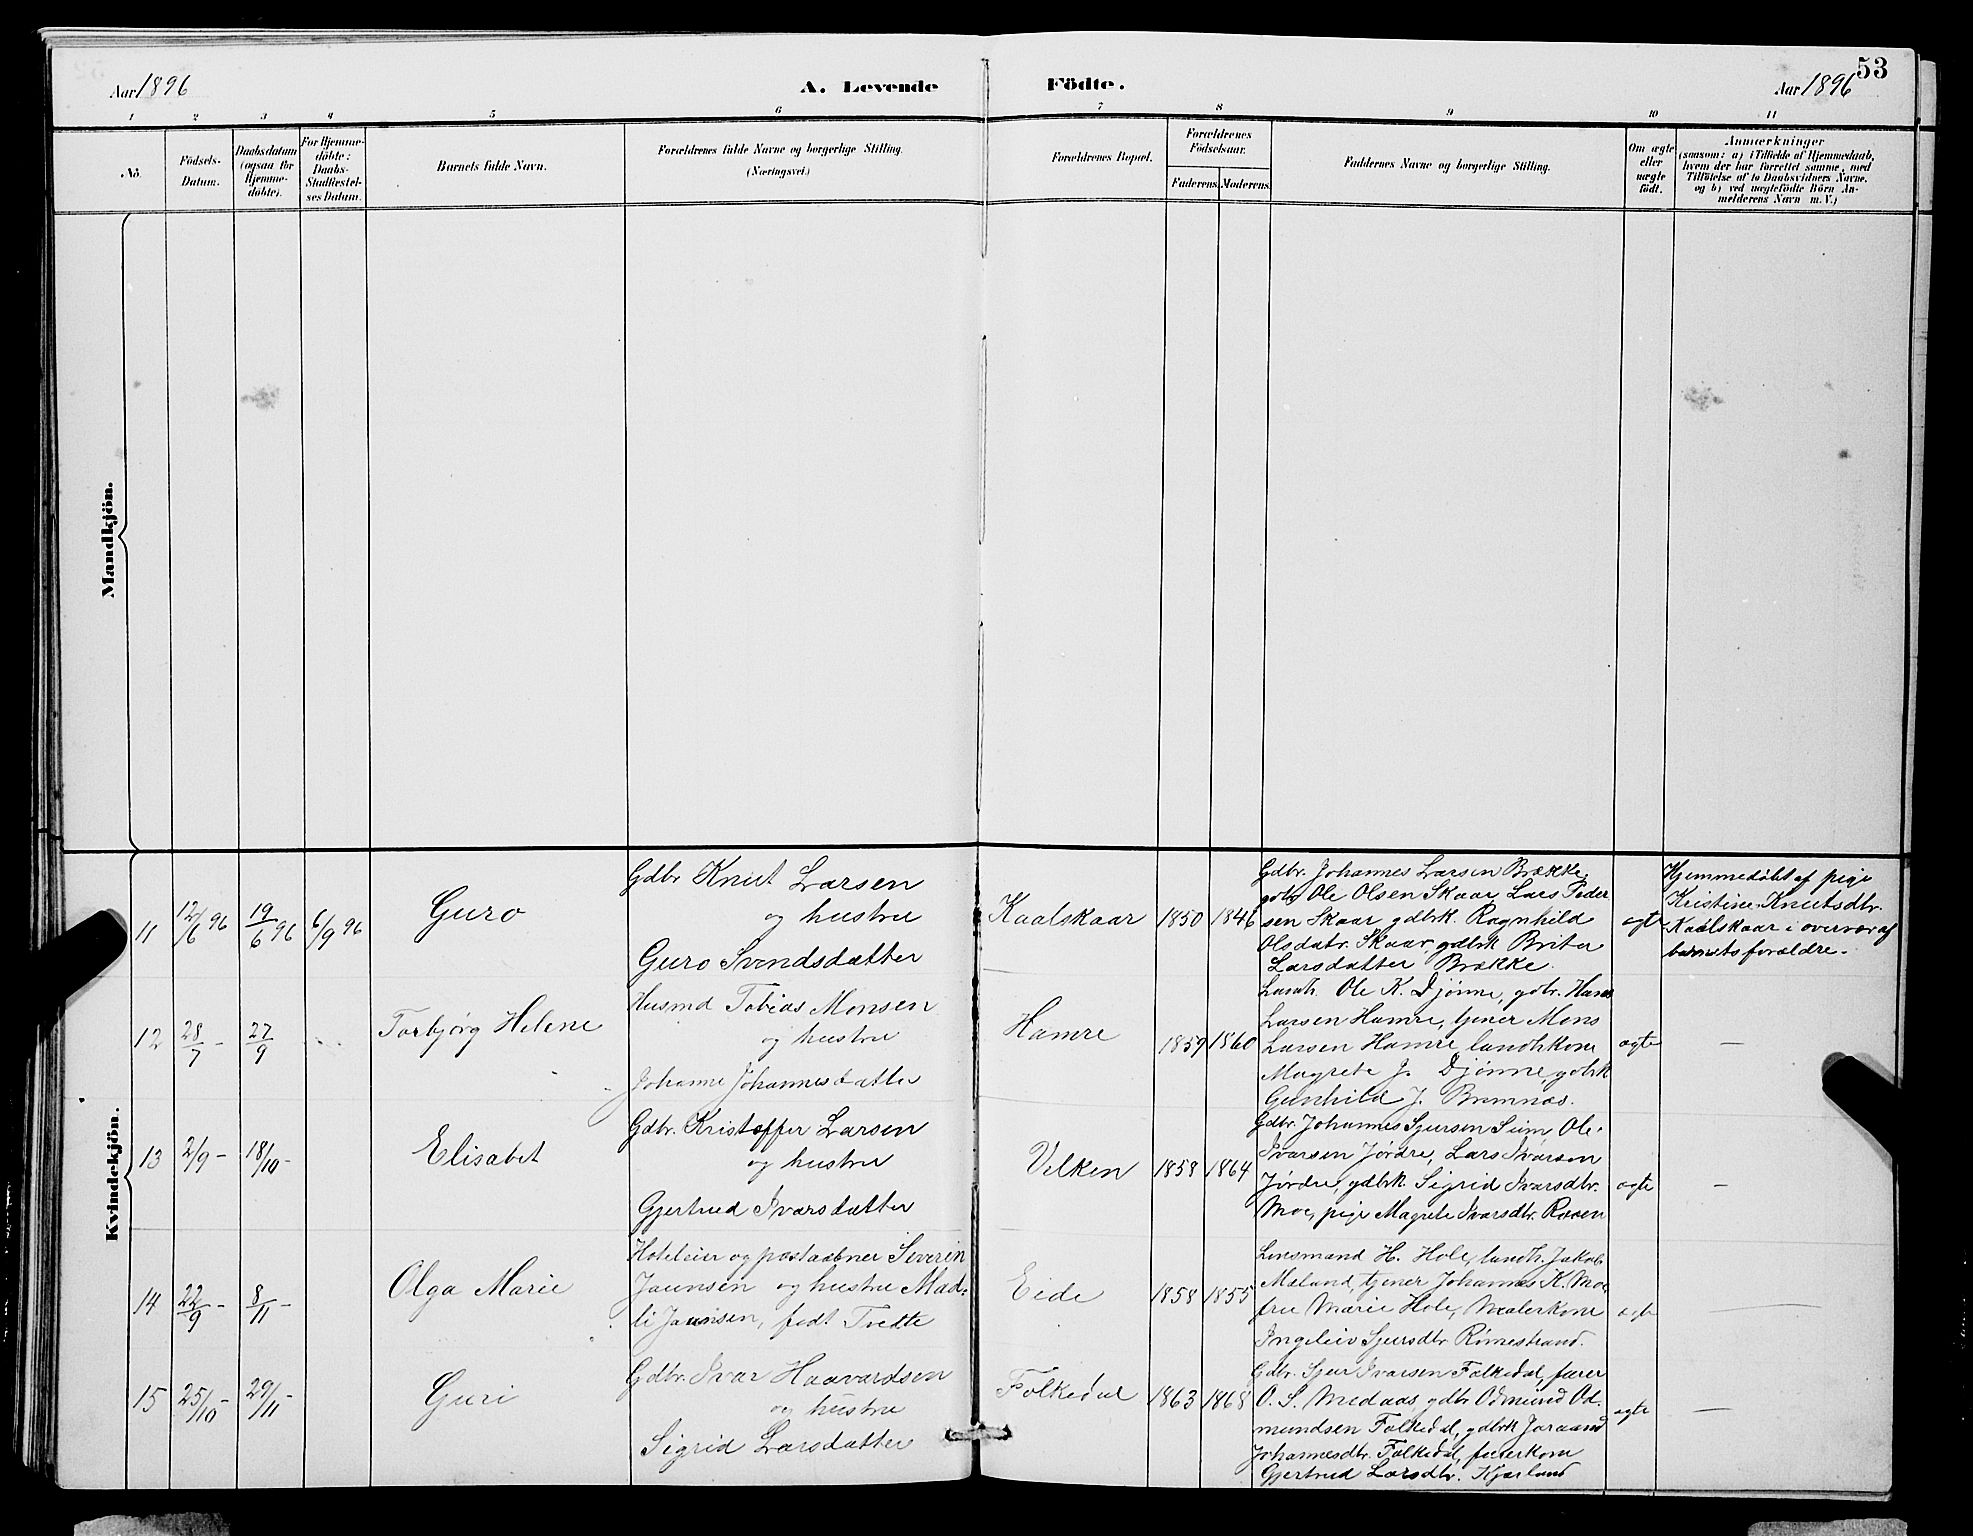 53
Aar 1896
A. Levende
Födte.
Aar 1896
1 2 3 4 5 6 7 8 9 10 11
No.
Födsels-
Datum.
Daabsdatum
(ogsaa for
Hjemme-
döbte).
For Hjemme-
döbte:
Daabs-
Stadfæstel-
ses Datum.
Barnets fulde Navn.
Forældrenes fulde Navne og borgerlige Stilling.
(Næringsvei.)
Forældrenes Bopæl.
Forældrenes
Födselsaar.
Faderens.
Moderens.
Faddernes Navne og borgerlige Stilling.
Om ægte
eller
uægte
födt.
Anmærkninger
(saasom: a) i Tilfælde af Hjemmedaab,
hvem der har forrettet samme, med
Tilföielse af to Daabsvidners Navne.
og b) ved uægtefödte Börn An-
melderens Navn m. V.)
Mandkjön.
Kvindekjön.
11
12/6 96
19/6 96
6/9 96
Guro
Gdbr Knut Larsen
og hustru
Guro Svendsdatter
Kaalskaar
1850
1846
Gdbr. Johannes Larsen Brække,
gdbr Ole Olsen Skaar, Lars Peder
sen Skaar, gdbrk. Ragnhild
Olsdatr. Skaar, gdbrk Brita
Larsdatter Brække.
ægte
Hjemmedøbt af pige
Kristine Knutsdtr.
Kaalskaar i overvær af
barnets forældre.
12
28/7 -
27/9
Torbjørg Helene
Husmd Tobias Monsen
og hustru
Johanne Johannesdatter
Hamre
1859
1860
Landh. Ole K. Djønne, gdbr. Hans
Larsen Hamre, tjener Mons
Larsen Hamre, landhkone
Magrete J. Djønne, gdbrk
Gunhild J. Bremnæs.
ægte
—
13
2/9 -
18/10 -
Elisabet
Gdbr. Kristoffer Larsen
og hustru
Gjertrud Ivarsdatter
Velken
1858
1864
Gdbr. Johannes Sjursen Seim, Ole
Ivarsen Jørdre, Lars Ivarsen
Jørdre, gdbrk. Sigrid Ivarsdtr.
Moe, pige Magrete Ivarsdtr.
ægte
—
14
22/9 -
8/11 -
Olga Marie
Hoteleier og postaabner Severin
Jaunsen og hustru Mad-
li Jaunsen, født Tvedte
Eide
1858
1855
Lensmand H. Hole, landh. Jakob
Mæland, tjener Johannes K. Moe,
fru Marie Hole, malerkone
Ingeleiv Sjursdtr Rømestrand.
ægte
—
15
25/10 -
29/11 -
Guri
Gdbr. Ivar Haavardsen
og hustru
Sigrid Larsdatter
Folkedal
1863
1868
Gdbr. Sjur Ivarsen Folkedal,
O. S. Medaas, gdbr Odmund Od-
mundsen Folkedal, gdbrk Joraand
Johannesdtr. Folkedal,
Gjertrud Larsdtr. Kjærland
ægte
—